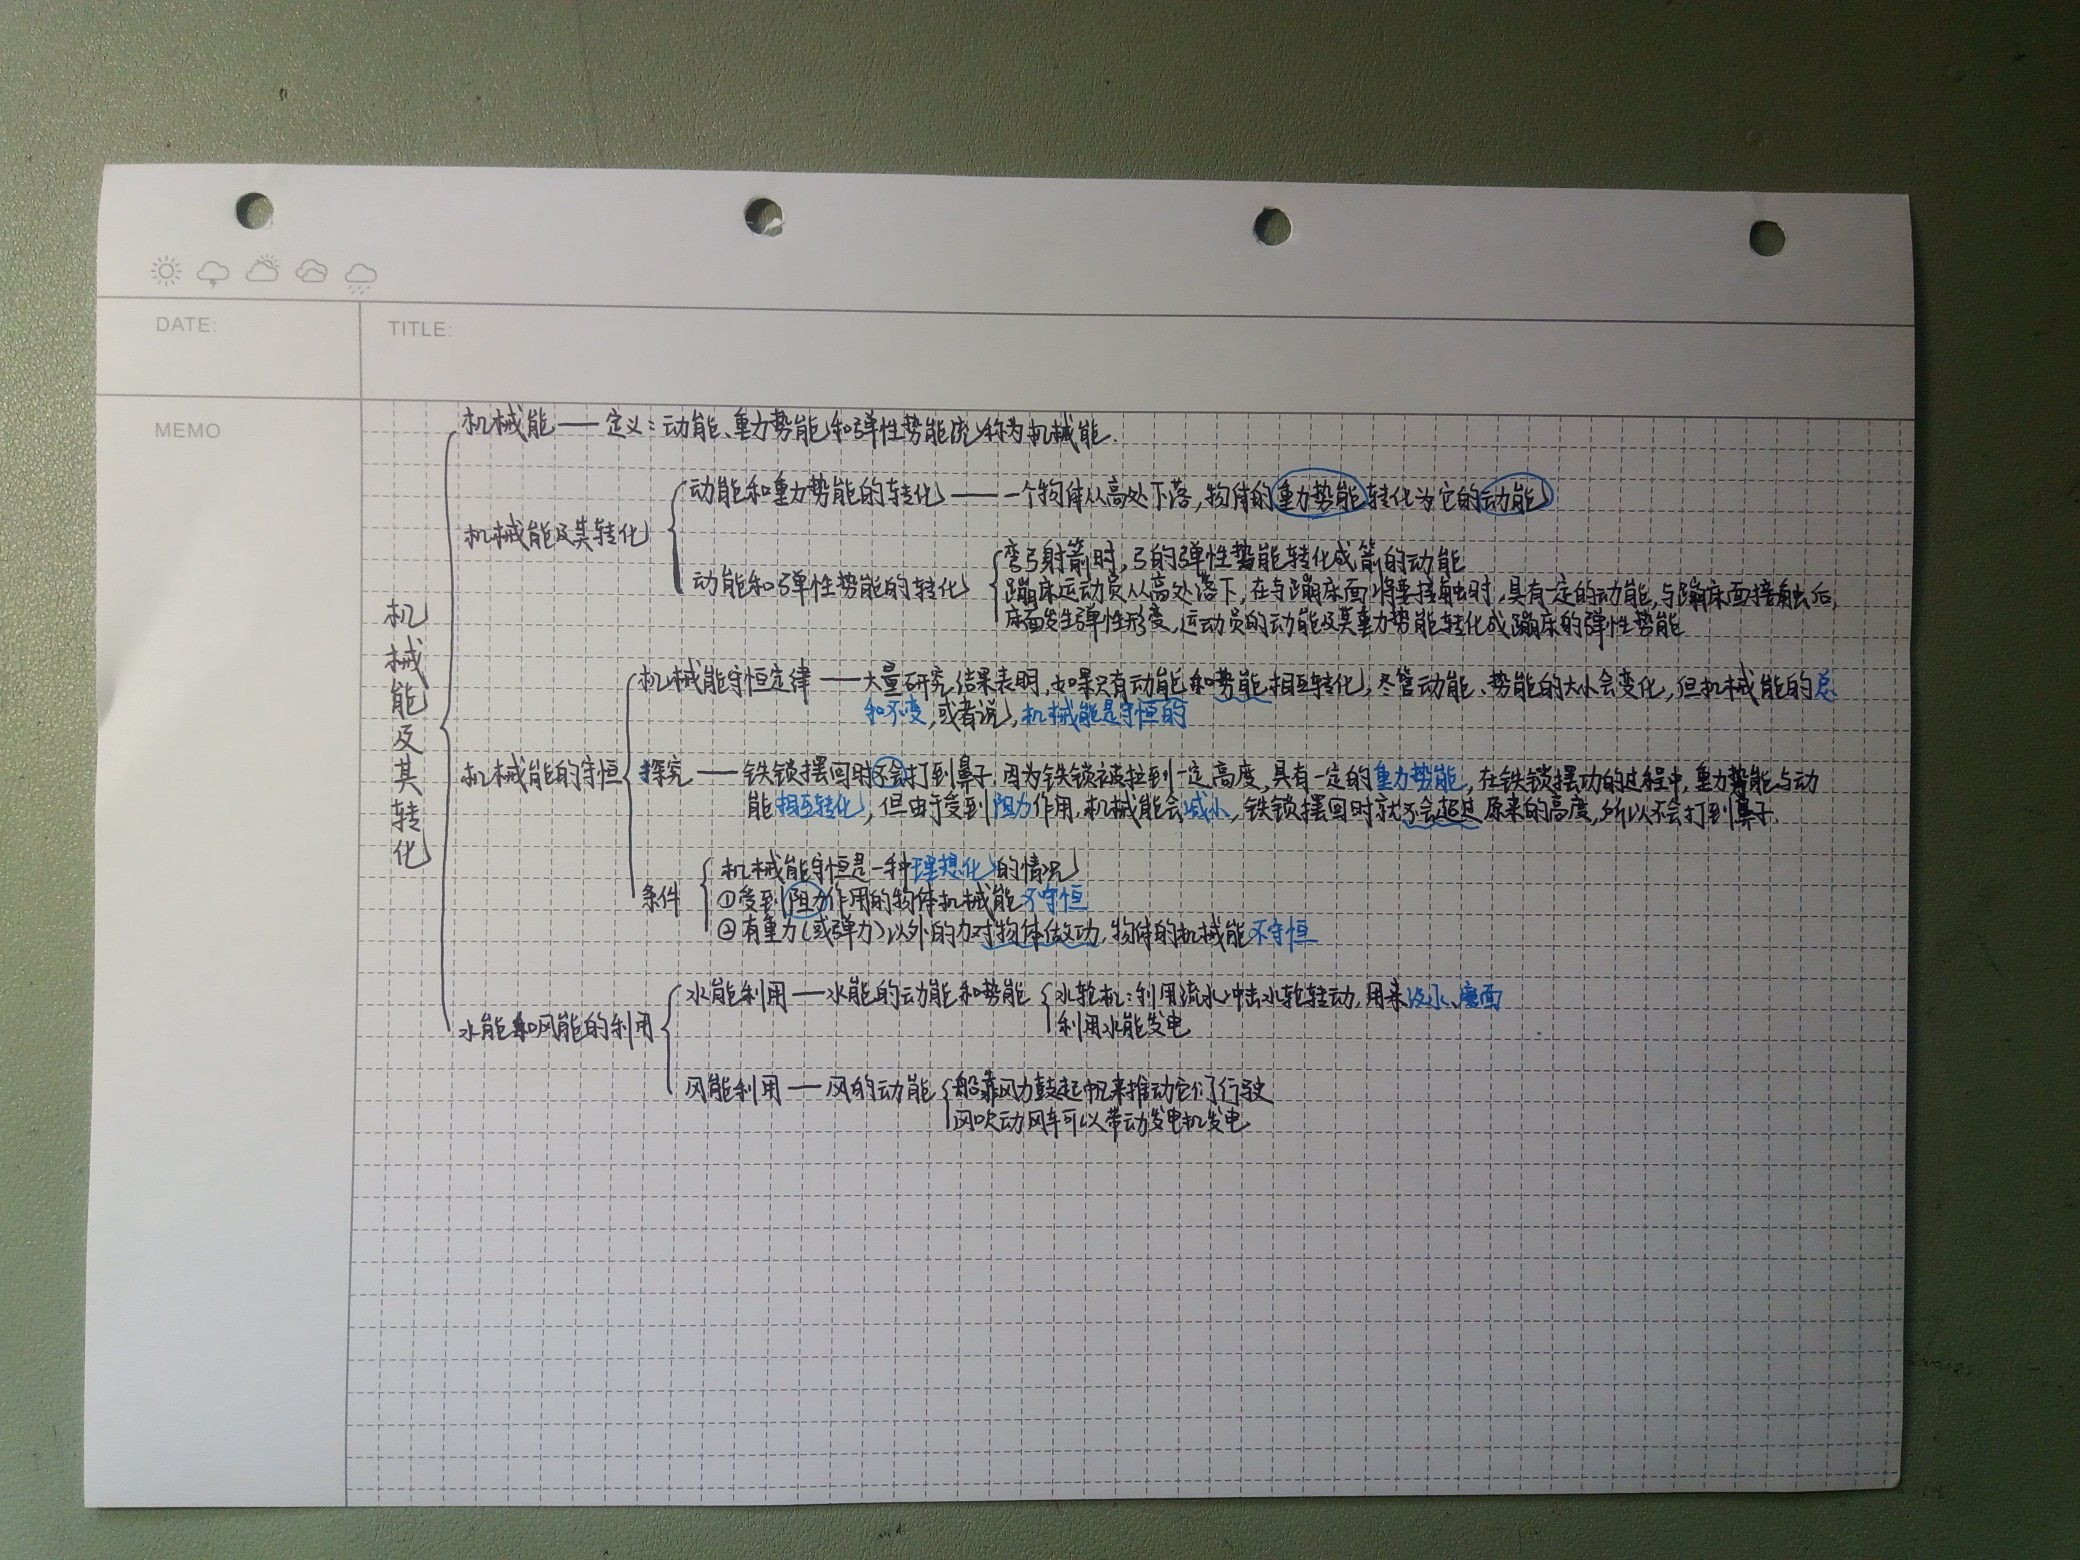 DATE:
TITLE:
MEMO
机械能及其转化
机械能——定义:动能、重力势能和弹性势能统称为机械能.
机械能及其转化
动能和重力势能的转化——一个物体从高处下落,物体的重力势能转化为它的动能
动能和弹性势能的转化
弯弓射箭时,弓的弹性势能转化成箭的动能
蹦床运动员从高处落下,在与蹦床面将要接触时,具有一定的动能,与蹦床面接触后,
床面发生弹性形变,运动员的动能及其重力势能转化成蹦床的弹性势能
机械能的守恒
机械能守恒定律——大量研究结果表明,如果只有动能和势能相互转化,尽管动能、势能的大小会变化,但机械能的总
和不变,或者说,机械能是守恒的
探究——铁锁摆回时不会打到鼻子.因为铁锁被拉到一定高度,具有一定的重力势能,在铁锁摆功的过程中,重力势能与动
能相互转化,但由于受到阻力作用,机械能会减小,铁锁摆回时就不会超过原来的高度,所以不会打到鼻子.
条件
机械能守恒是一种理想化的情况
①受到阻力作用的物体机械能不守恒
②有重力(或弹力)以外的力对物体做功,物体的机械能不守恒
水能和风能的利用
水能利用——水能的动能和势能
水轮机:利用流水冲击水轮转动,用来汲水、磨面
利用水能发电
风能利用——风的动能
船靠风力鼓起帆来推动它们行驶
风吹动风车可以带动发电机发电